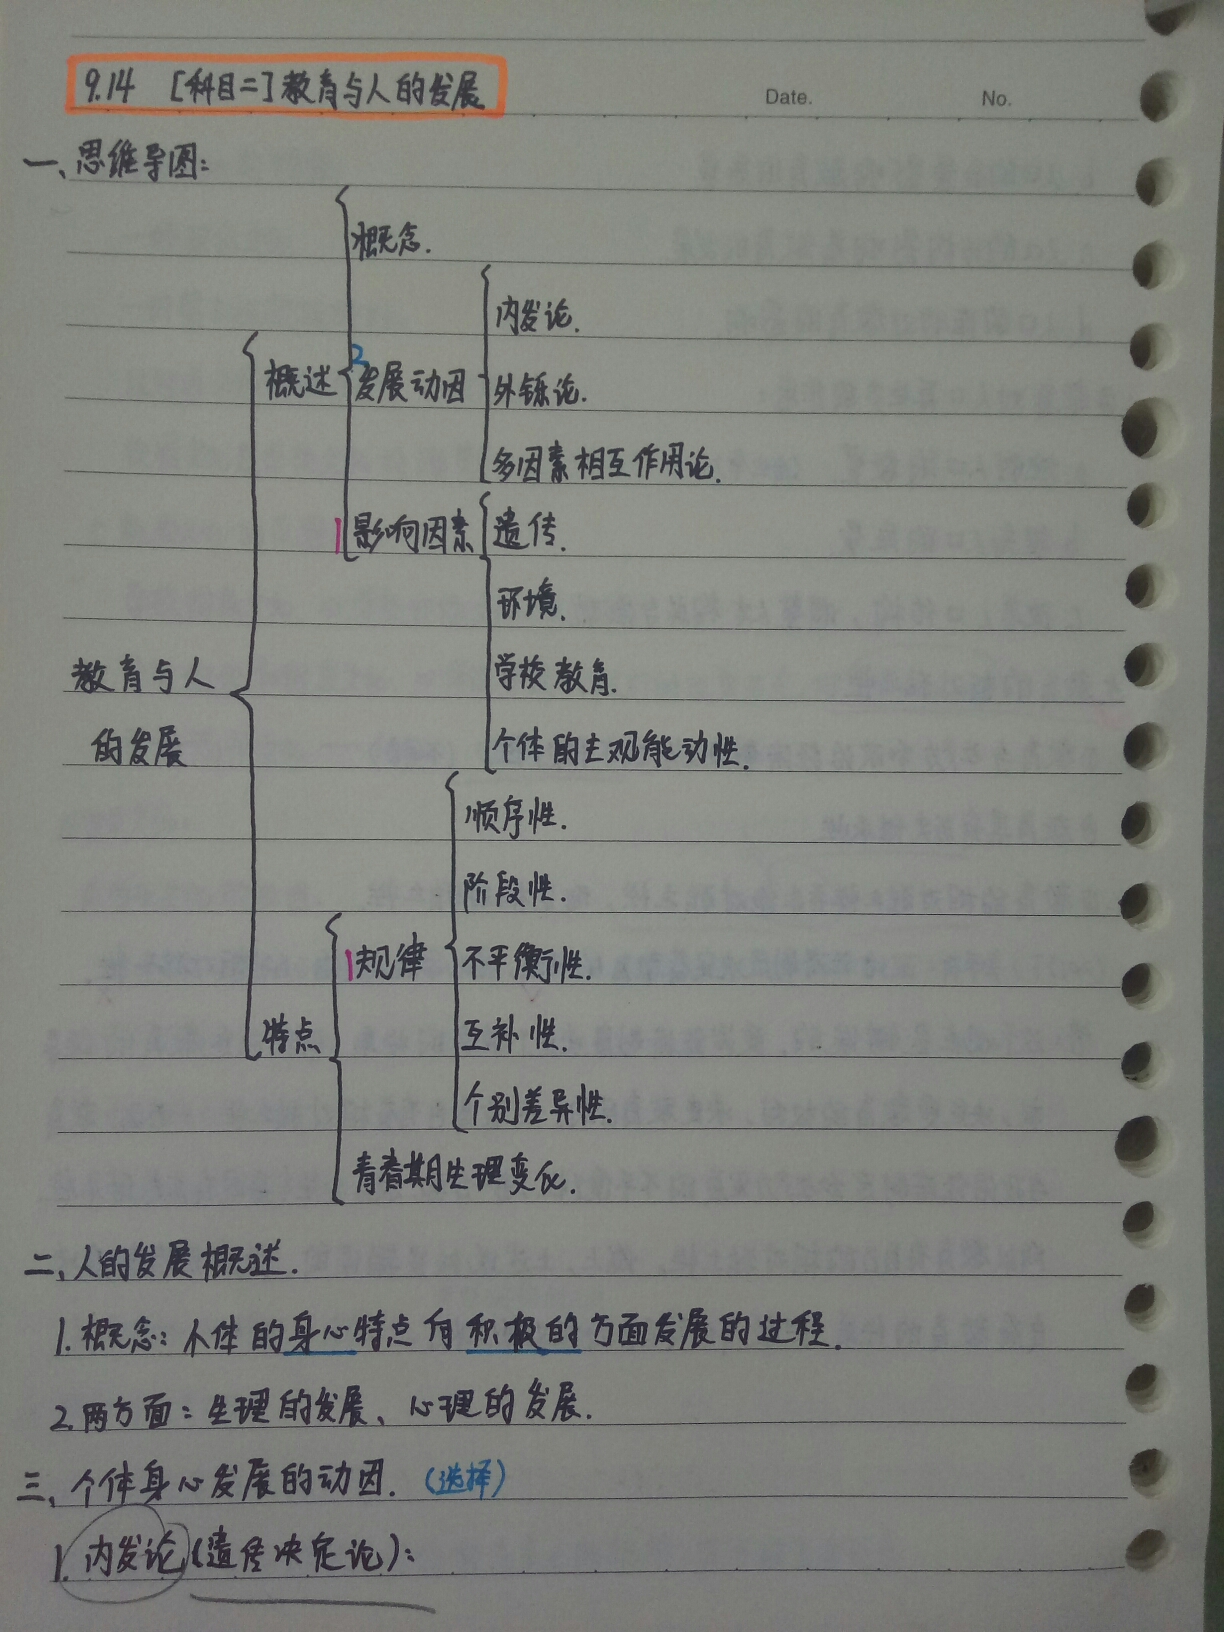 9.14 [科目二]教育与人的发展
Date.
No.
一、思维导图:
概念.
内发论.
2
概述
发展动因
外铄论.
多因素相互作用论.
1
影响因素
遗传.
环境.
学校教育.
教育与人
的发展
个体的主观能动性.
顺序性.
阶段性.
1
规律
不平衡性.
特点
互补性.
个别差异性.
青春期生理变化.
二、人的发展概述.
1.概念:个体的身心特点向积极的方面发展的过程.
2.两方面:生理的发展、心理的发展.
三、个体身心发展的动因.(选择)
1.内发论(遗传决定论):